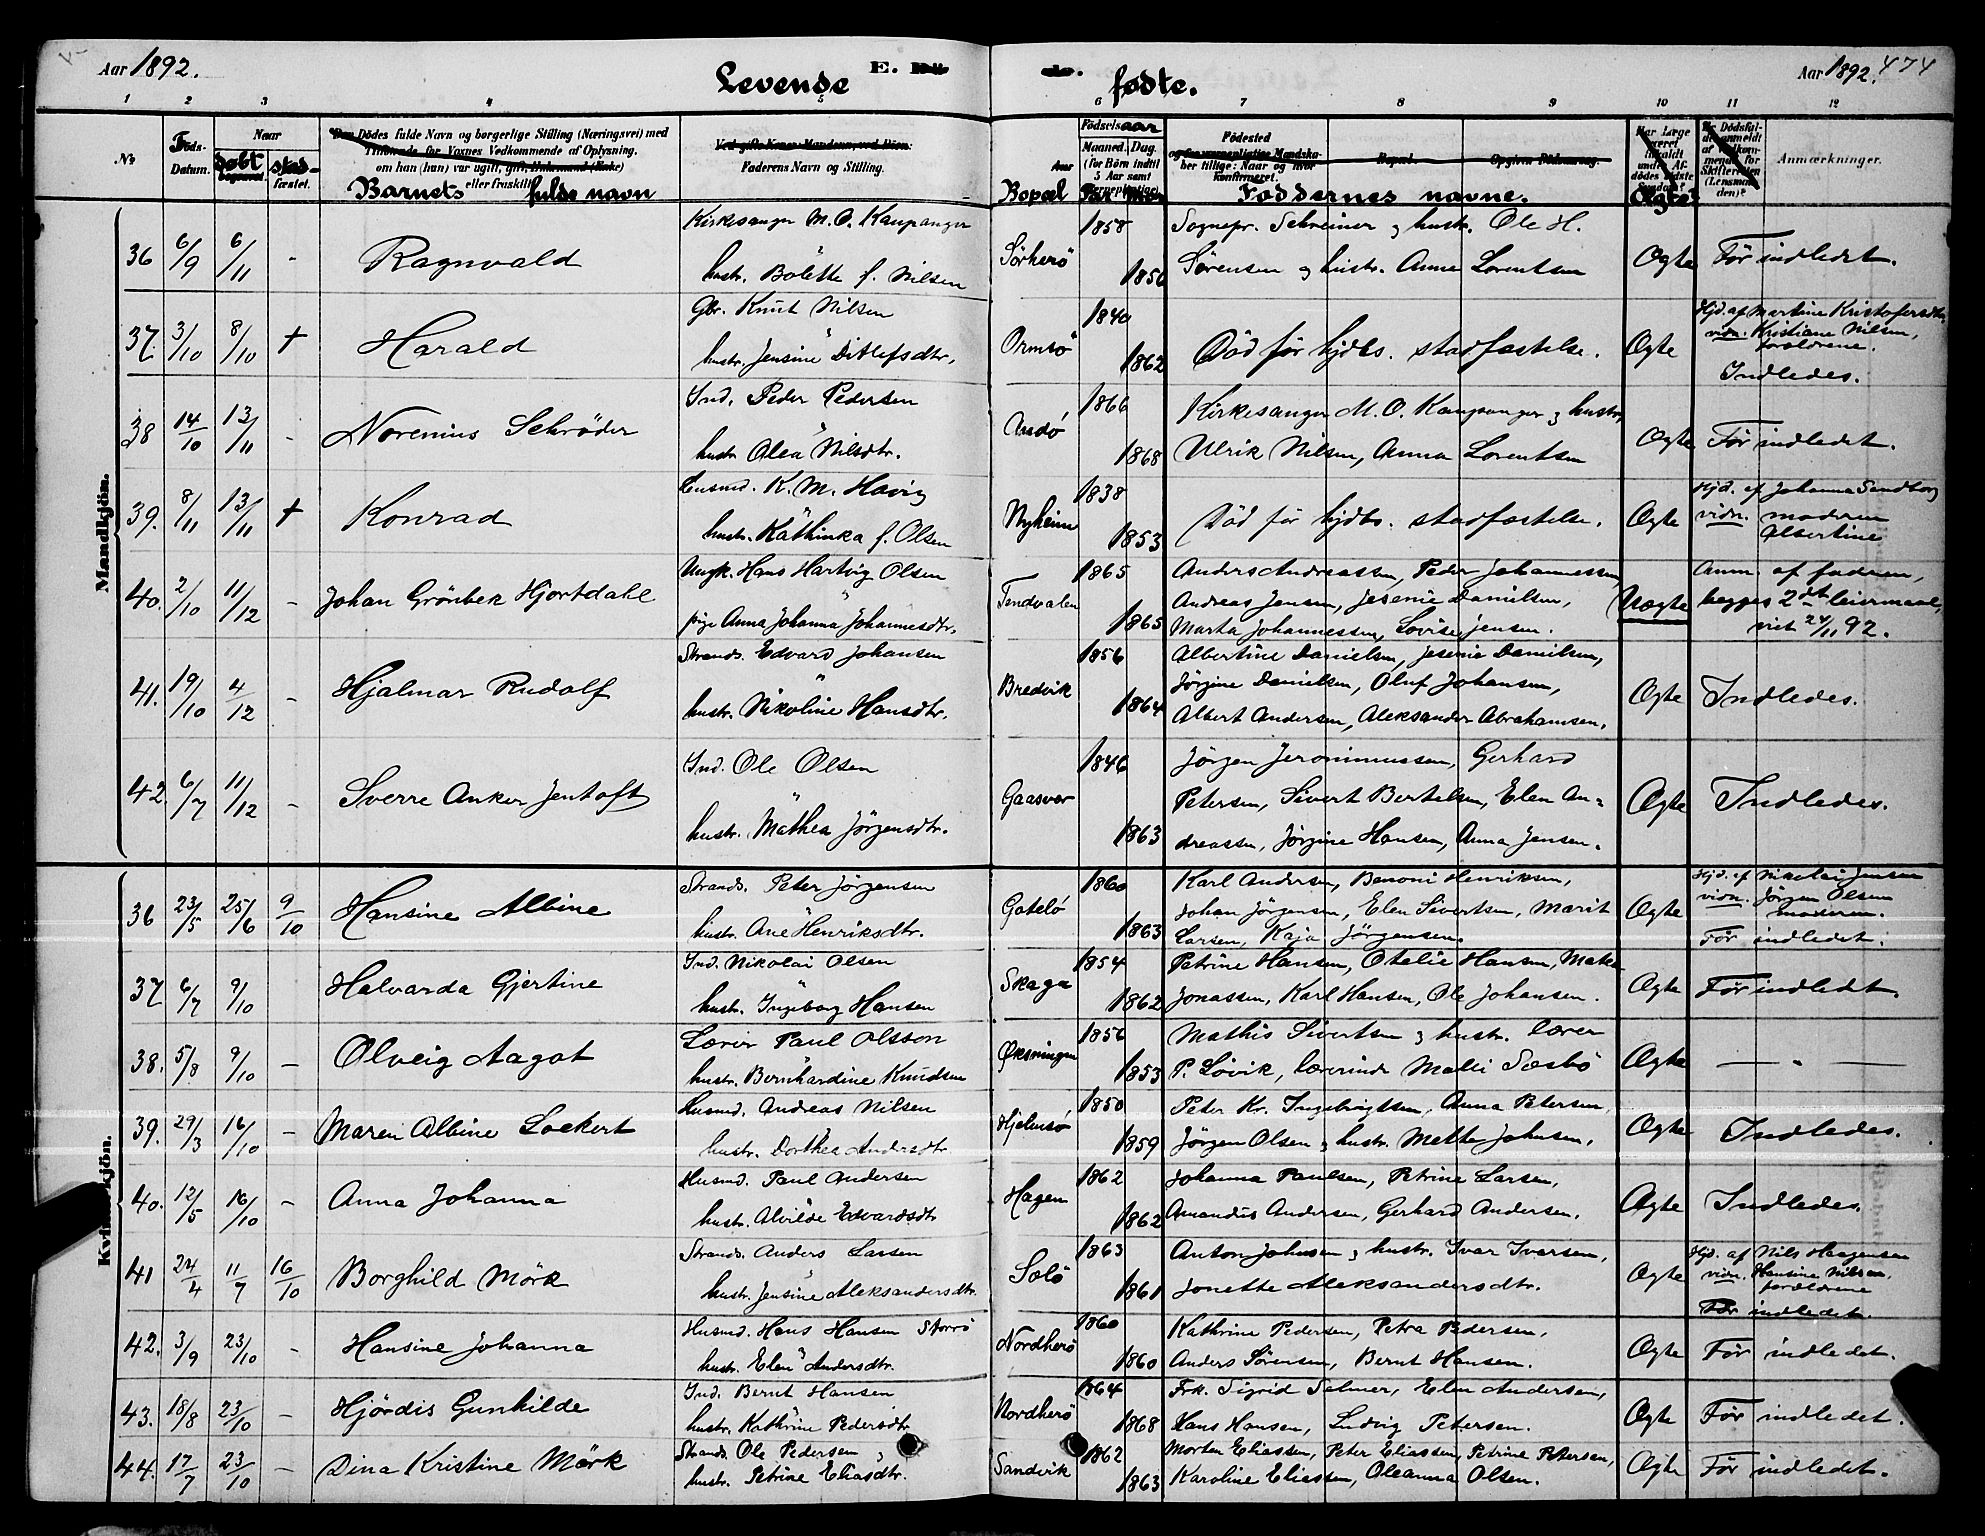 Aar 1892.
Levende E. Dö
de. fødte.
Aar 1892. 474
1 2 3 4 5 6 7 8 9 10 11 12
No
Föds-
Datum.
Naar
døbt
stad-
fæstet.
Den Dödes fulde Navn og borgerlige Stilling (Næringsvei) med
Tilföiende for Voxnes Vedkommende af Oplysning,
om han (hun) var ugift, gift, Enkemand (Enke)
eller fraskilt
Barnets fulde navn
Ved gifte Koner: Mandens, ved Börn:
Faderens Navn og Stilling.
Bopæl
Födselsaar
Maaned. Dag.
(for Börn indtil
5 Aar samt
Födested
og for værnepligtige Mandska-
ber tillige: Naar og hvor
konfirmeret.
Bopæl.
Opgiven Dödsaarsag.
Faddernes navne.
Har Læge
været
tilkaldt
under Af-
dödes sidste
Sygdom?
Ægte
Er Dödsfal-
det anmeldt
af Vedkom-
mende for
Skifteretten
(Lensman-
den)?
Anmærkninger.
Mandkjön.
36 6/9 6/11 - Ragnvald
Kirkesanger M. O. Kaupanger
hustr. Bolette f. Nilsen
Sörherö 1858 1850
Sognepr. Schreiner & hustr. Ole H.
Sørensen & hustr. Anna Lorentsen
Ægte Før indledet.
37. 3/10 8/10 + Harald
Gbr. Knut Nilsen
hustr. Jensine Ditlefsdtr.
Ormsö 1840 1862
Död før hjdbs. stadfæstelse.
Ægte
Hjd. af Martine Kristofersdtr.
vidn. Kristiane Nilsen,
forældrene.
Indledes.
38 14/10 13/11 - Norenius Schröder
Ind. Peder Pedersen
hustr Olea Nilsdtr.
Andø 1866 1868
Kirkesanger M. O. Kaupanger & hustr,
Ulrik Nilsen, Anna Lorentsen
Ægte Før indledet.
39. 8/11 13/11 + Konrad
K. M. Havig
hustr. Kathinka f. Olsen
Nyheim 1838 1853
Död før hjdbs. stadfæstelse.
Ægte
Hjd. af Johanna Sandborg
vidn. moderen
Albertine
40. 2/10 11/12 - Johan Grönbek Hjortdahl
Ungk. Hans Hartvig Olsen
pige Anna Johanna Johannesdtr.
Tendvalen 1865 1865
Anders Andreassen, Peder Johannessen,
Andreas Jensen, Jesenie Danielsen,
Marta Johannessen, Lovise Jensen.
Uægte
Anm. af faderen,
begges 2det leiermaal,
vist 24/11 92.
41. 19/10 4/12 - Hjalmar Rudolf
Strands. Edvard Johansen
hustr. Nikoline Hansdtr.
Bredvik 1856 1864
Albertine Danielsen, Jesenie Danielsen,
Jörgine Danielsen, Oluf Johansen,
Albert Andersen, Aleksander Abrahamsen.
Ægte Indledes.
42 6/7 11/12 - Sverre Anker Jentoft
Ind. Ole Olsen
hustr. Mathea Jörgensdtr.
Gaasvær 1846 1863
Jörgen Jeronimussen, Gerhard
Petersen, Sivert Bertelsen, Elen An-
dreassen, Jörgine Hansen, Anna Jensen.
Ægte Indledes.
Kvindekjön.
36 23/5 25/6 9/10 Hansine Albine
Strands. Peter Jörgensen
hustr. Ane Henriksdtr.
Gateløʹ 1860 1863
Karl Andersen, Benoni Henriksen,
Johan Jörgensen, Elen Sivertsen, Marit
Larsen, Kaja Jörgensen.
Ægte
Hjd. af Nikolai Jensen
vidn. Jörgen Olsen
moderen.
Før indledet.
37 6/7 9/10 Halvarda Gjertine
Ind. Nikolai Olsen
hustr. Ingeborg Hansen
Skaga 1854 1862
Petrine Hansen, Otelie Hansen,
Jonassen, Karl Hansen, Ole Johansen.
Ægte Før indledt.
38. 5/8 9/10 - Olveig Aagot
Lærer Paul Olsson
hustr. Bernhardine Knudsen
Øksningen 1856 1853
Mathis Sivertsen & hustr. lærer
P. Løvik, lærerinde Malli Sæsbø
Ægte — " —
39. 29/3 16/10 - Maren Albine Lockert
Husmd. Andreas Nilsen
hustr. Dorthea Andersdtr
Hjelmsø 1850 1859
Peter Kr. Ingebrigtsen, Anna Petersen,
Jörgen Olsen & hustr. Mette Johnsen.
Ægte Indledes.
40. 12/5 16/10 - Anna Johanna
Husmd. Paul Andersen
hustr. Alvilde Edvardsdtr
Hagen 1862 1862
Johanna Paulsen, Petrine Larsen,
Amandus Andersen, Gerhard Andersen.
Ægte Indledes.
41 24/4 11/7 16/10 Borghild Mörk
Strands. Anders Larsen
hustr. Jensine Aleksandersdtr.
Solö 1863 1861
Anton Johnsen & hustr. Ivar Ivarsen,
Jonette Aleksandersdtr.
Ægte
Hjd. af Nils Haagensen
vidn. Hansine Nilsen.
forældrene
Før indledet.
42. 3/9 23/10 - Hansine Johanna
Husmd. Hans Hansen Storrö
hustr. Elen Andersdtr.
Nordherö 1860 1860
Kathrine Pedersen, Petra Pedersen,
Anders Sørensen, Bernt Hansen.
Ægte Før indledet.
43. 18/8 23/10 - Hjördis Gunhilde
Ind. Bernt Hansen
hustr. Kathrine Pedersdtr
Nordherö 1864 1868
Frk. Sigrid Selmer, Elen Andersen,
Hans Hansen, Ludvig Petersen.
Ægte Før indledet.
44. 17/7 23/10 - Dina Kristine Mörk
Strands. Ole Pedersen &
hustr. Petrine Eliasdtr.
Sandvik 1862 1863
Morten Eliassen, Peter Eliassen, Petrine Petersen,
Karoline Eliassen, Oleanna Olsen.
Ægte Før indledet.